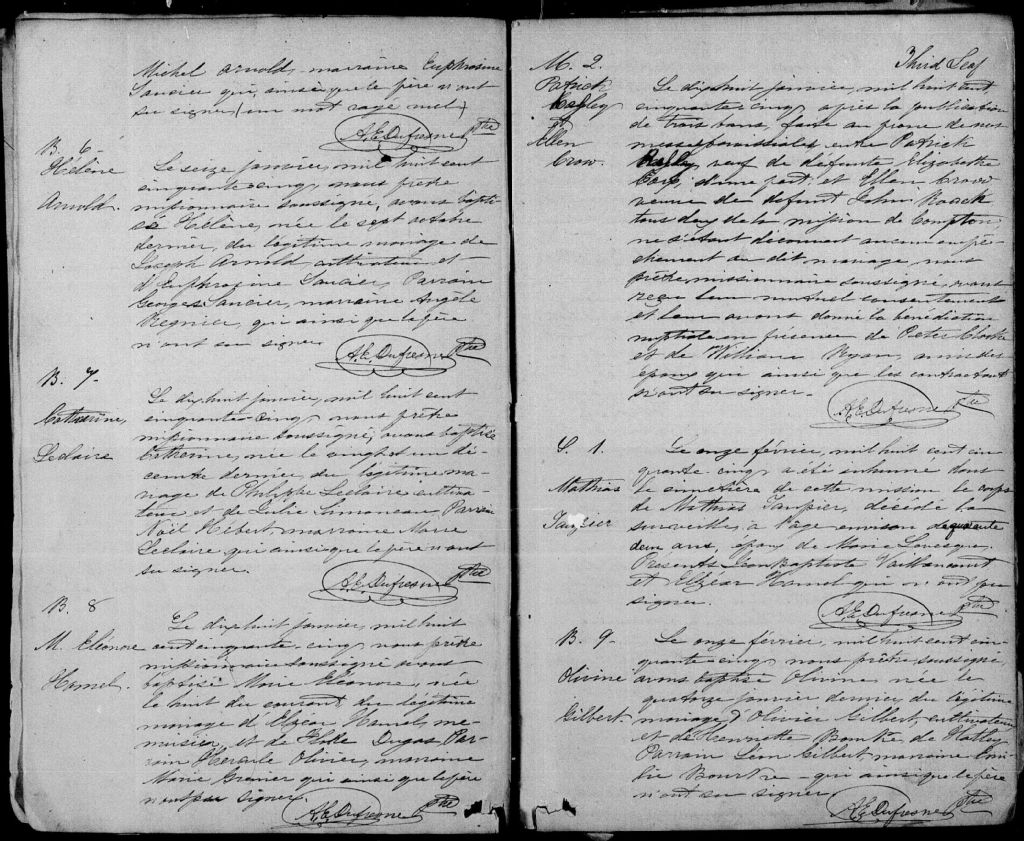 Michel Arnold, marraine Euphrosine
Saucier qui, ainsi que le père n'ont
su signer (un mot rayé nul)
A.E. Dufresne Ptre
B. 6
Hélène
Arnold.
Le seize janvier, mil huit cent
cinquante-cinq, nous prêtre
missionnaire soussigné, avons bapti-
sé Hélène, née le sept octobre
dernier, du légitime mariage de
Joseph Arnold cultivateur et
d'Euphrosine Saucier, Parrain
Georges Saucier, marraine Angèle
Regnier, qui ainsi que le père
n'ont su signer
A.E. Dufresne Ptre
B. 7
Catherine,
Leclaire
Le dix huit janvier, mil huit cent
cinquante-cinq nous prêtre
missionnaire soussigné, avons baptisé
Catherine, née le vingt et un dé-
cembre dernier, du légitime ma-
riage de Philippe Leclaire cultiva-
teur et de Julie Simoneau Parrain
Noël Hébert, marraine Marie
Leclaire, qui ainsi que le père n'ont
su signer.
A.E. Dufresne Ptre
B. 8
M. Eléonore
Hamel.
Le dix huit janvier, mil huit
cent cinquante-cinq nous prêtre
missionnaire soussigné avons
baptisé Marie Eléonore, née
le huit du courant du légitime
mariage d'Elzéar Hamel, me-
nuisier, et de Dugas Par-
rain Hercule Olivier, marraine
Marie Grenier qui ainsi que le père
n'ont pu signer.
A.E. Dufresne Ptre
Third Leaf
M. 2.
Patrick
&
Ellen
Crow.
Le dix huit janvier, mil huit cent
cinquante cinq, après la publication
de trois bans, faite au prône de nos
messes paroissiales entre Patrick
veuf de defunte Elizabeth
d'une part, et Ellen Crow
veuve de defunt John Roack
tous deux de la mission de Compton;
ne s'étant découvert aucun empê-
chement au dit mariage, nous
prêtre missionnaire soussigné, avons
reçu leur mutuel consentement
et leur avons donné la bénédiction
nuptiale en présence de Peter
et de William Ryan, amis des
époux qui ainsi que les contractants
n'ont su signer.
A.E. Dufresne Ptre
S. 1.
Mathias
Le onze février, mil huit cent cin-
quante cinq a été inhumé dans
le cimetière de cette mission le corps
de Mathias décédé la
surveille, à l'âge environ de quarante
deux ans, époux de Marie Levesque.
Présents Jean Baptiste Vaillancourt
et Elzéar Hamel qui n'ont pu
signer.
A.E. Dufresne Ptre
B. 9.
Olivine
Gilbert
Le onze février, mil huit cent cin-
quante-cinq nous prêtre soussigné,
avons baptisé Olivine née le
quatorze janvier dernier du légitime
mariage d'Olivier Gilbert, cultivateur
et de Henriette de Hatley
Parrain Léon Gilbert, marraine
qui ainsi que le père
n'ont su signer.
A.E. Dufresne Ptre